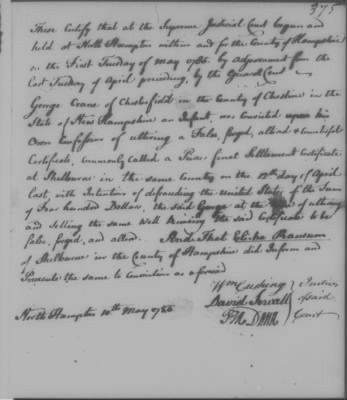 375
These Certify that at the Supreme Judicial Court begun and
held at North Hampton within and for the County of Hampshire
on the First Tuesday of May 1786. by Adjournment from the
last Tuesday of April preceeding, by the Court
George Crane of Chesterfield in the County of Cheshire in the
State of New Hampshire an Infant, was Convicted upon his
own Confession of uttering a False, forged, altered & counterfeit
Certificate, commonly called a Peirce final Settlement Certificate
at Shelburne in the same County on the 12th day of April
last, with Intention of defrauding the United States of the Sum
of Four hundred Dollars, the said George at the of uttering
and selling the same well knowing the said Certificate to be
false, forged, and altered. And That Elisha Ransom
of Shelburne in the County of Hampshire did Inform and
Prosecute the same to Conviction as aforesaid
North Hampton 10th May 1786
Wm Cushing
David Sewall
FR. DANA
Justices
of said
Court